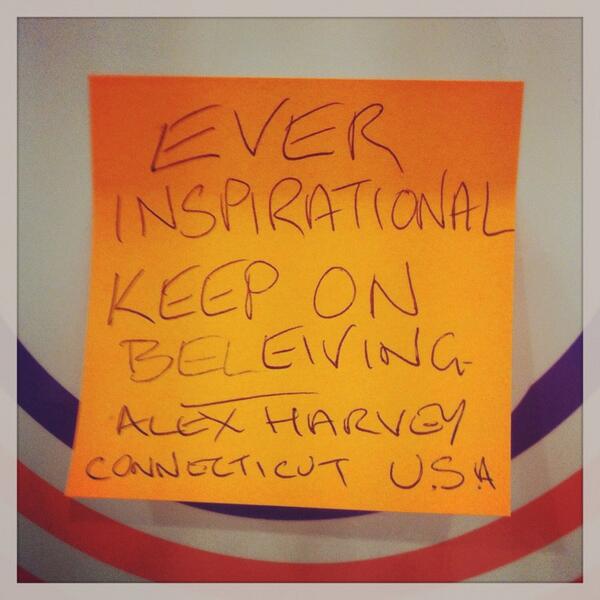 EVER
INSPIRATIONAL
KEEP ON
BELEIVING
ALEX HARVEY
CONNECTICUT U.S.A